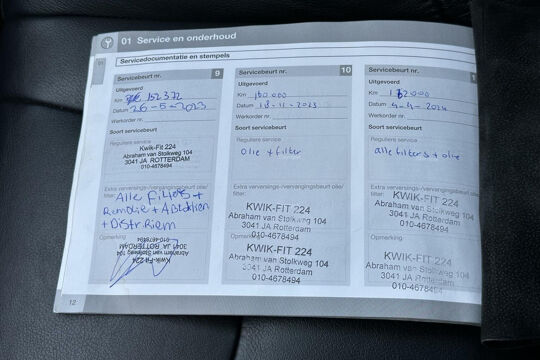 01 Service en onderhoud
Servicedocumentatie en stempels
Servicebeurt nr. 9
Uitgevoerd
Km 152 372
Datum 26-5-2023
Werkorder nr.
Soort servicebeurt
Reguliere service
Kwik-Fit 224
Abraham van Stolkweg 104
3041 JA ROTTERDAM
010-4678494
Extra verversings-/vervangingsbeurt olie/
filter:
Alle Filters +
Remolie +
+ Distr Riem
Opmerking
Kwik-Fit 224
Abraham van Stolkweg 104
3041 JA ROTTERDAM
010-4678494
Servicebeurt nr. 10
Uitgevoerd
Km 160.000
Datum 18-11-2023
Werkorder nr.
Soort servicebeurt
Reguliere service
Olie + filter
Extra verversings-/vervangingsbeurt olie/
filter:
KWIK-FIT 224
Abraham van Stolkweg 104
3041 JA Rotterdam
010-4678494
Opmerking
KWIK-FIT 224
Abraham van Stolkweg 104
3041 JA Rotterdam
010-4678494
Servicebeurt nr.
Uitgevoerd
Km
Datum 4-4-2024
Werkorder nr.
Soort servicebeurt
Reguliere service
alle filters + olie
Extra verversings-/vervangingsbeurt
filter:
KWIK-FIT 224
Abraham van Stolkweg 104
3041 JA Rotterdam
010-4678494
KWIK-FIT 224
Abraham van Stolkweg 104
3041 JA Rotterdam
010-4678494
12